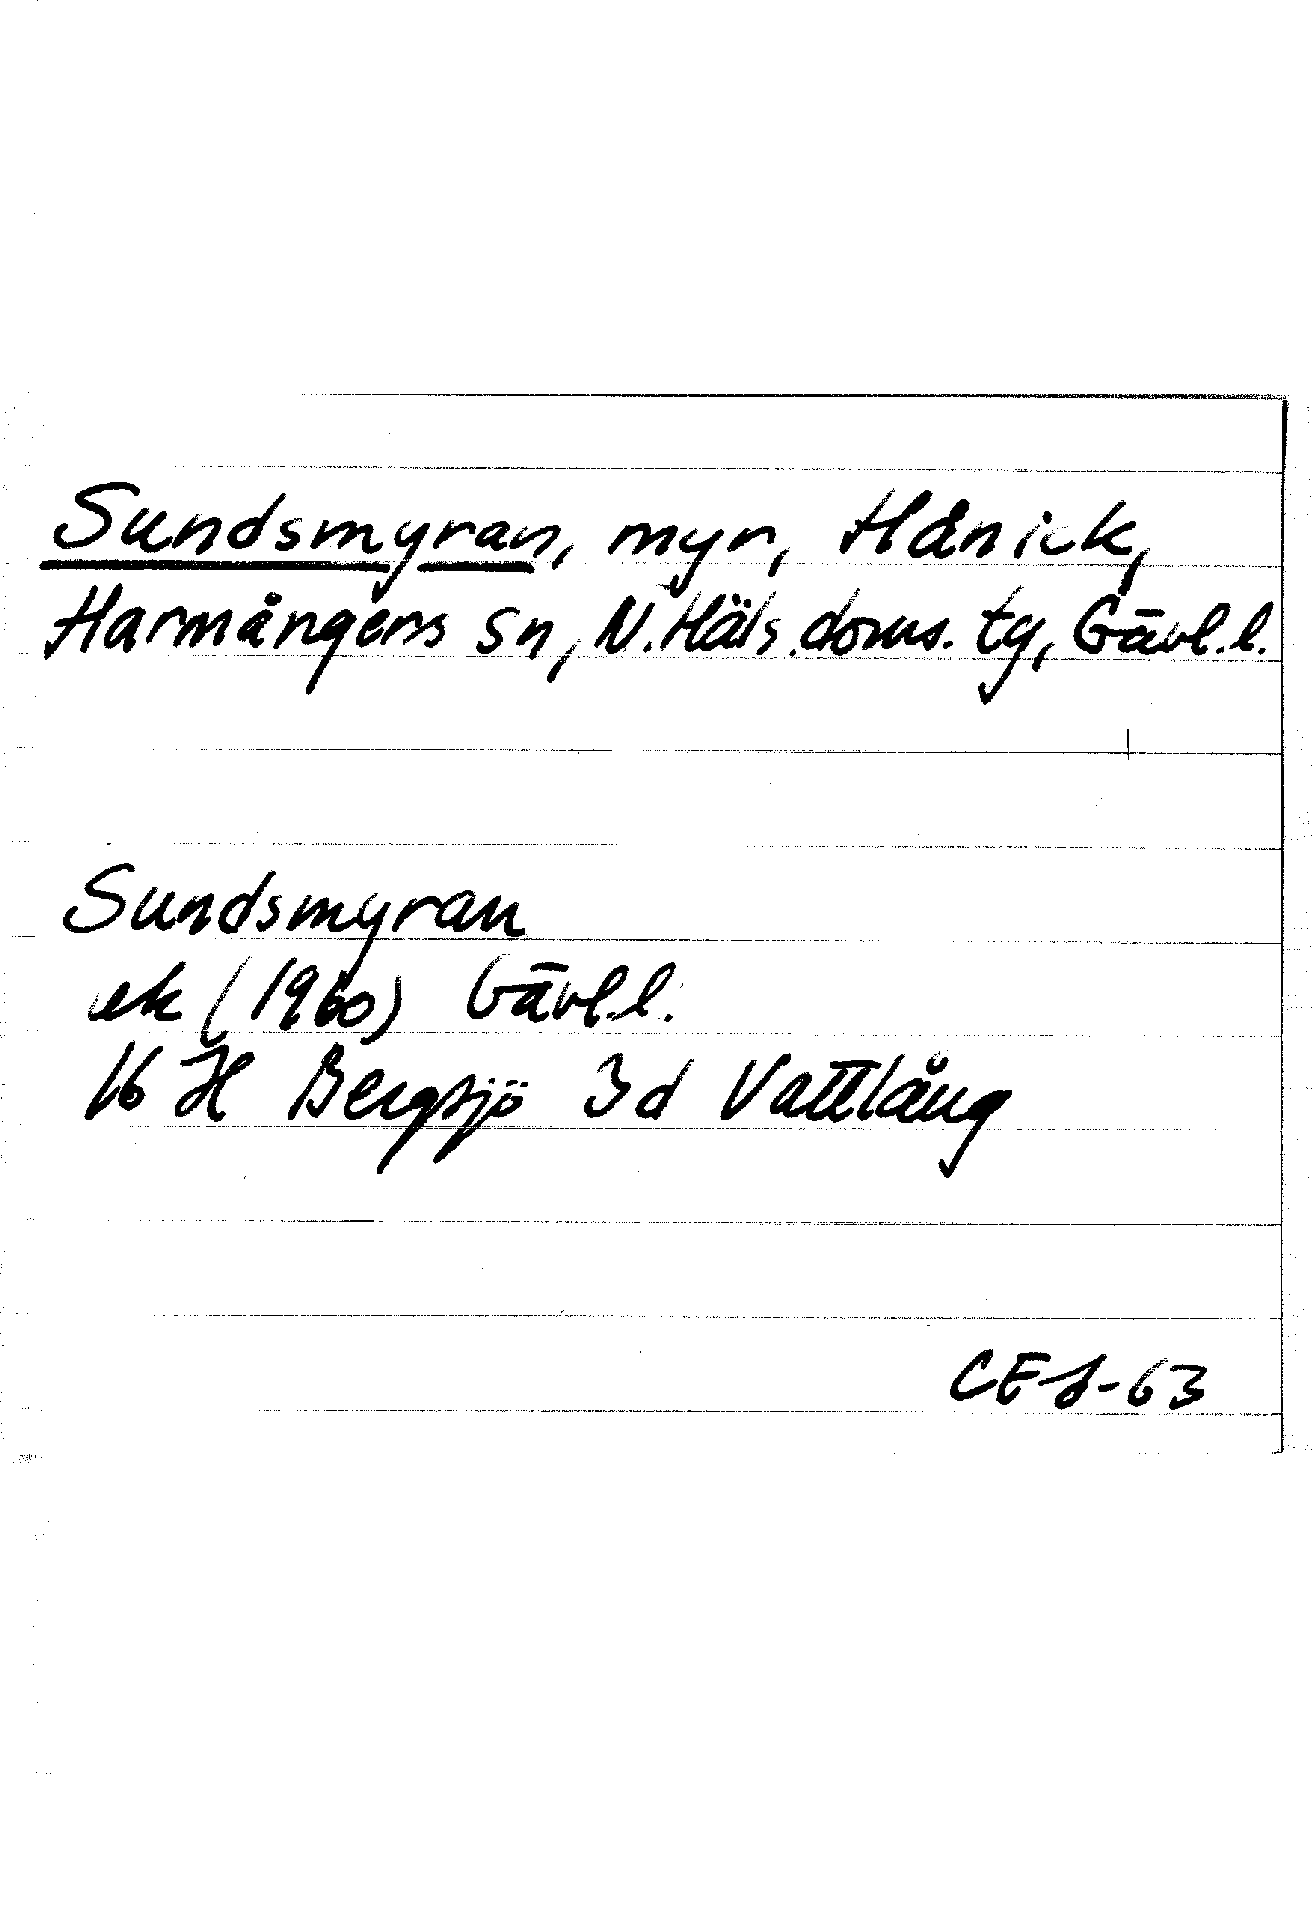 Sundsmyran, myr, Hånick,
Harmångers sn, N. Häls. doms. tg, Gävl. l.
Sundsmyran
ek (1960) Gävl. l.
16 H Bergsjö 3d Vattlång
CEJ-63